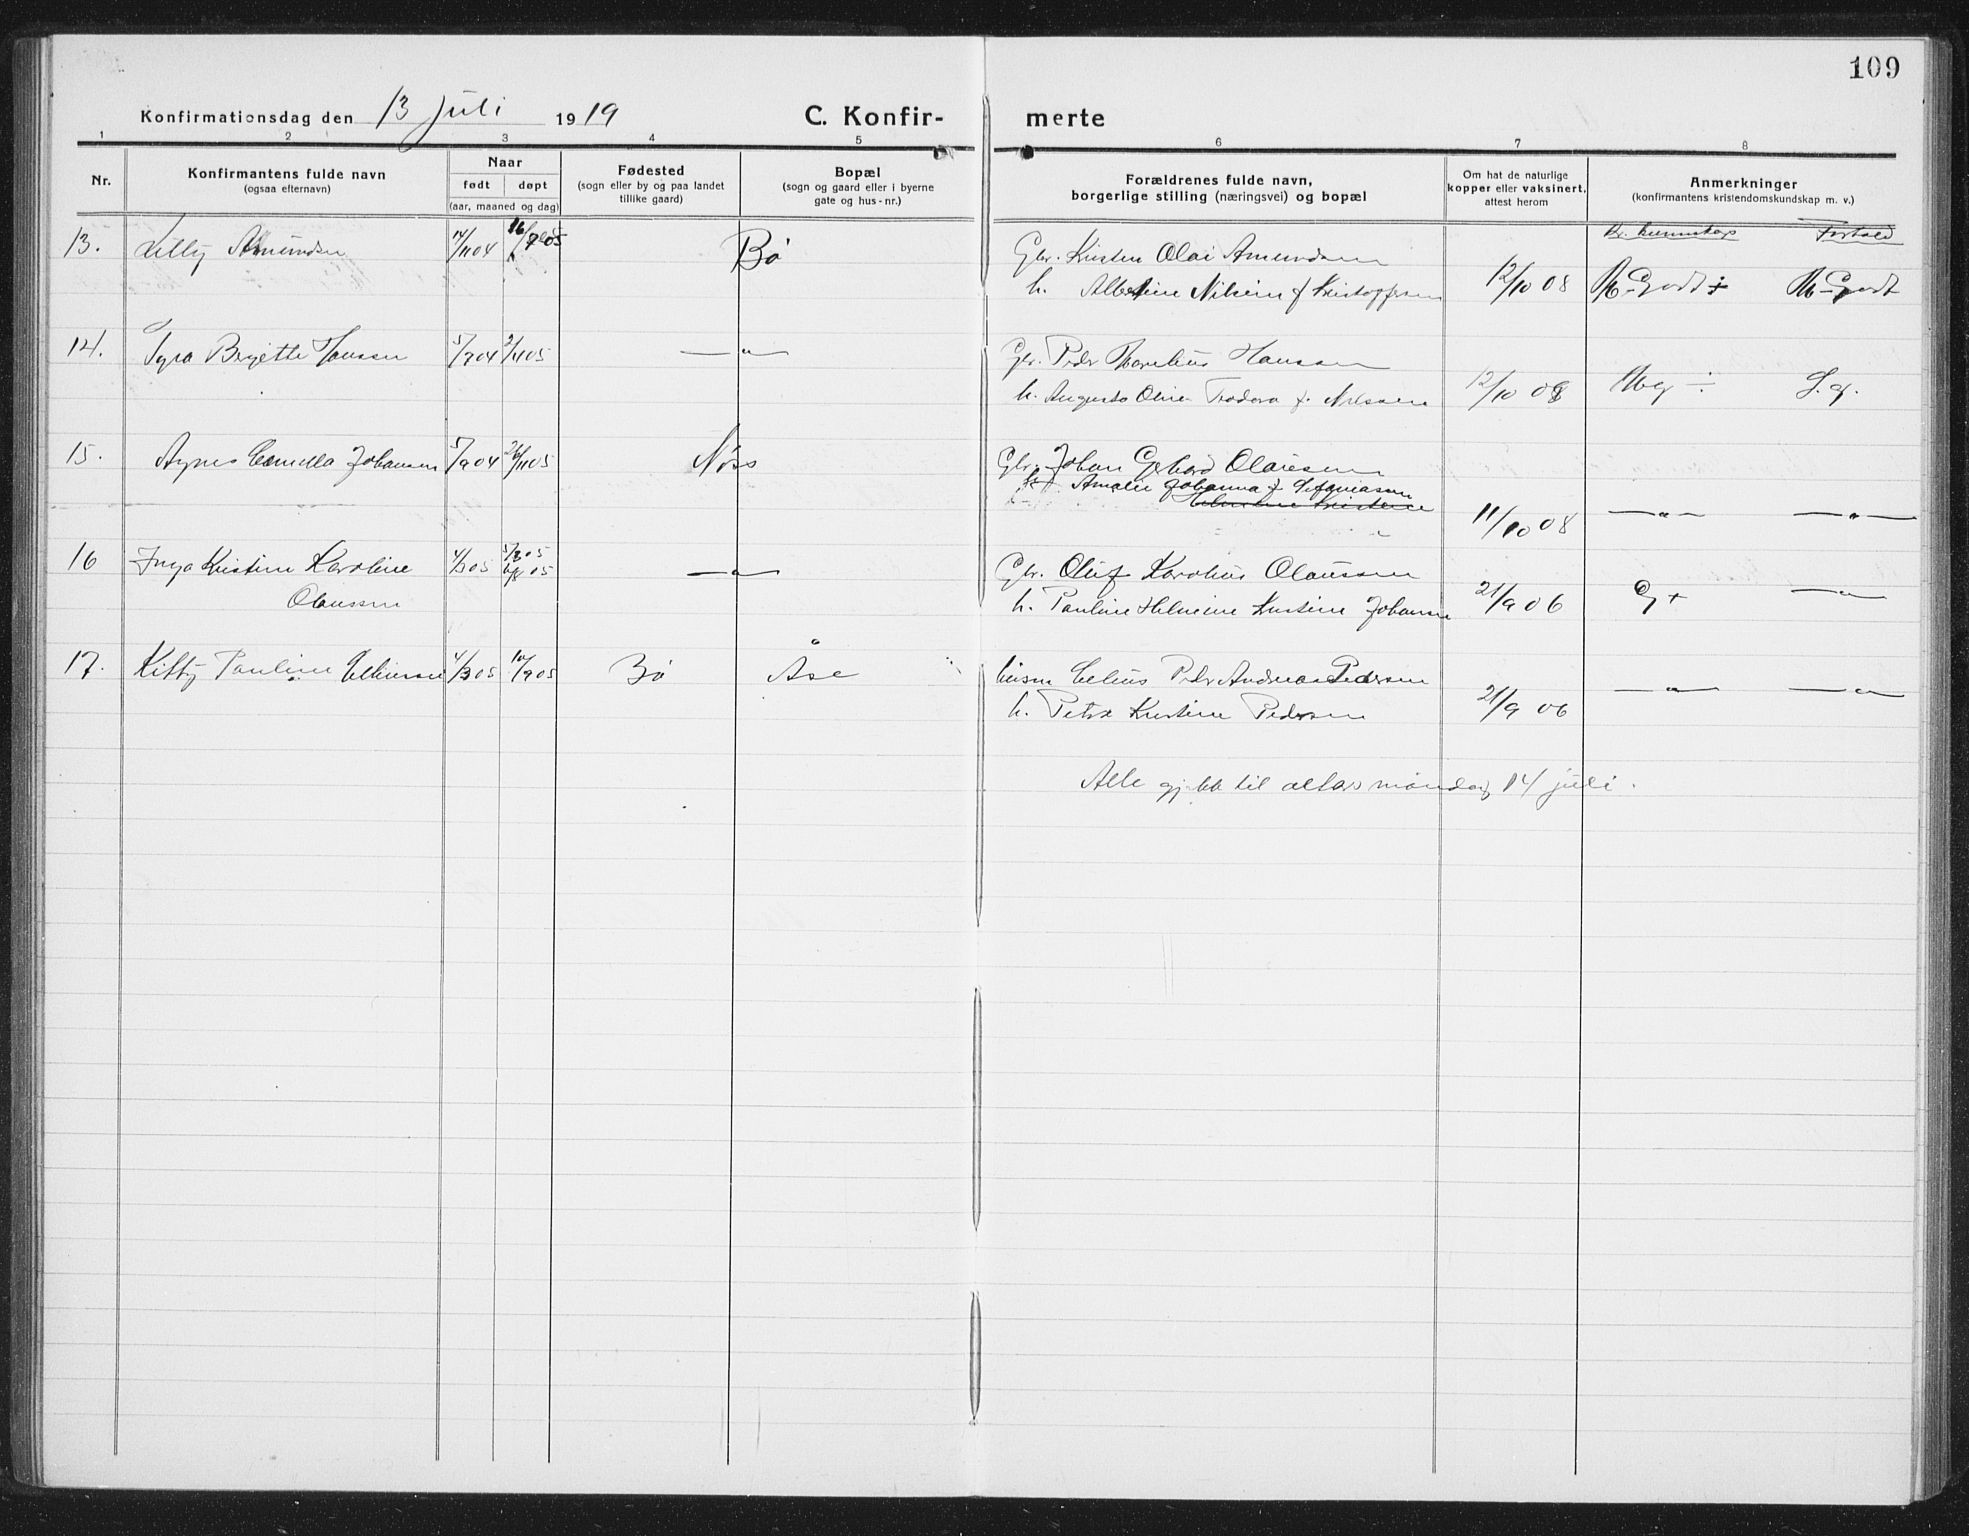 109
Konfirmationsdag den 13 juli 1919 C. Konfir- merte
1 2 3 4 5 6 7 8
Nr.
Konfirmantens fulde navn
(ogsaa efternavn)
Naar
født døpt
(aar, maaned og dag)
Fødested
(sogn eller by og paa landet
tillike gaard)
Bopæl
(sogn og gaard eller i byerne
gate og hus-nr.)
Forældrenes fulde navn,
borgerlige stilling (næringsvei) og bopæl
Om hat de naturlige
kopper eller vaksinert,
attest herom
Anmerkninger
(konfirmantens kristendomskundskap m. v.)
Kr. kunnskap Forhold
13. Lilly Amundsen 14/11 04 16/7 05 Bø Gbr. Kristen Olai Amundsen
h. Albertine Nilsine f. Kristoffersen 12/10 08 M-Godt ÷ M-Godt
14. Byette Hanssen 5/9 04 2/4 05 —"— Gbr. Peder Hanssen
h. Augusta Oline Teodora f. Nilssen 12/10 08 Mg ÷ S.g.
15. Agnes Camilla Johansen 5/9 04 26/11 05 Nøss Gbr. Johan Gerhard Olaisen
Amalie Johanna f. Sefaniassen
11/10 08 —"— —"—
16 Inga Kristine Karoline 4/3 05 5/3 05
Olaussen 6/8 05 —"— Gbr. Oluf Karolius Olaussen
h. Pauline Helmine Kristine Johansen 21/9 06 G+ —"—
17. Kitty Pauline 4/3 05 10/9 05 Bø Åse husm Celius Peder Andreas Pedersen
h. Petra Kristine Pedersen 21/9 06 —"— —"—
Alle gikk til alters mandag 14 juli.